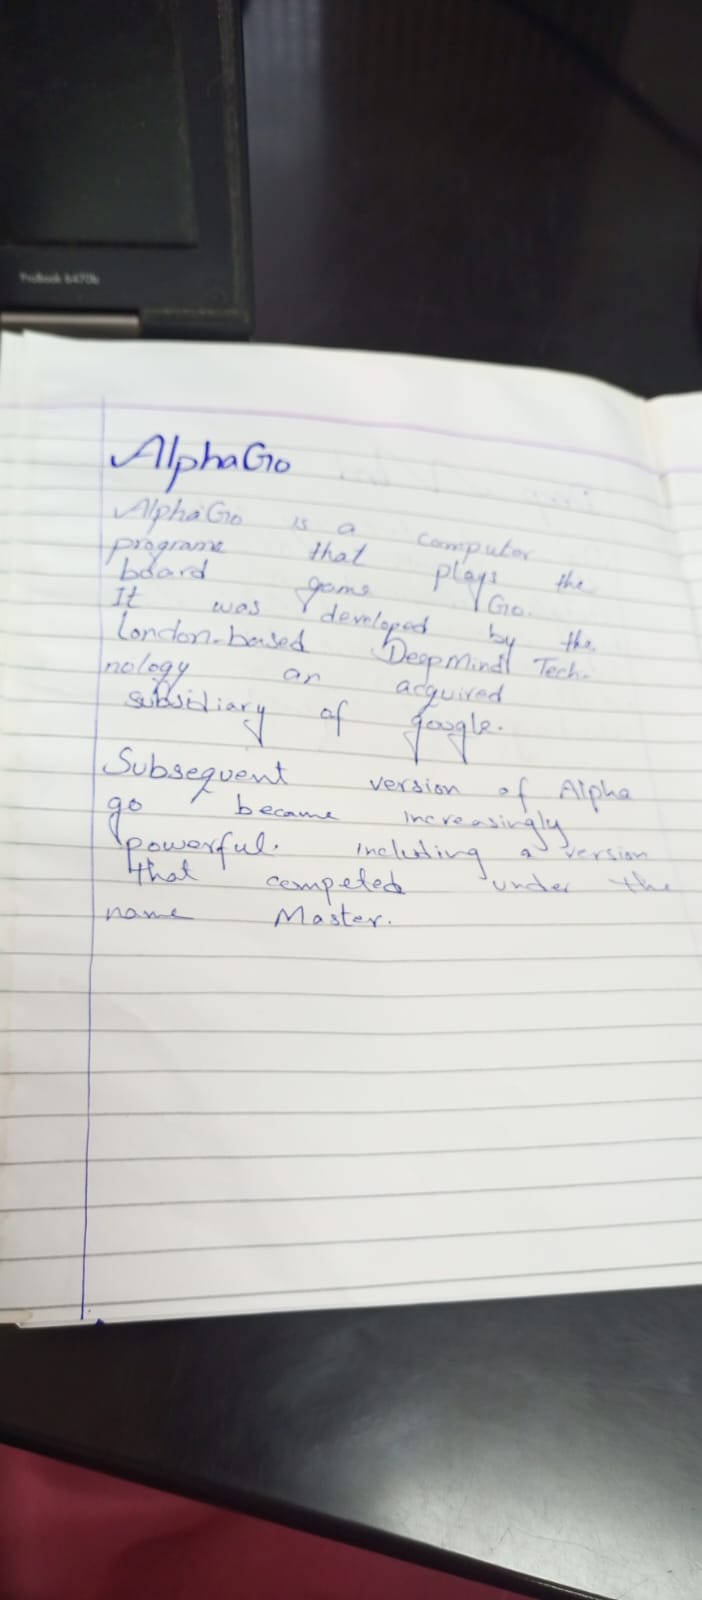 ProBook 6470b
AlphaGo
AlphaGo is a computer
programe that plays the
board game Go.
It was developed by the
London-based DeepMind Tech-
nology an acquired
subsidiary of google.
Subsequent version of Alpha
go became increasingly
powerful. including a version
that competed under the
name Master.